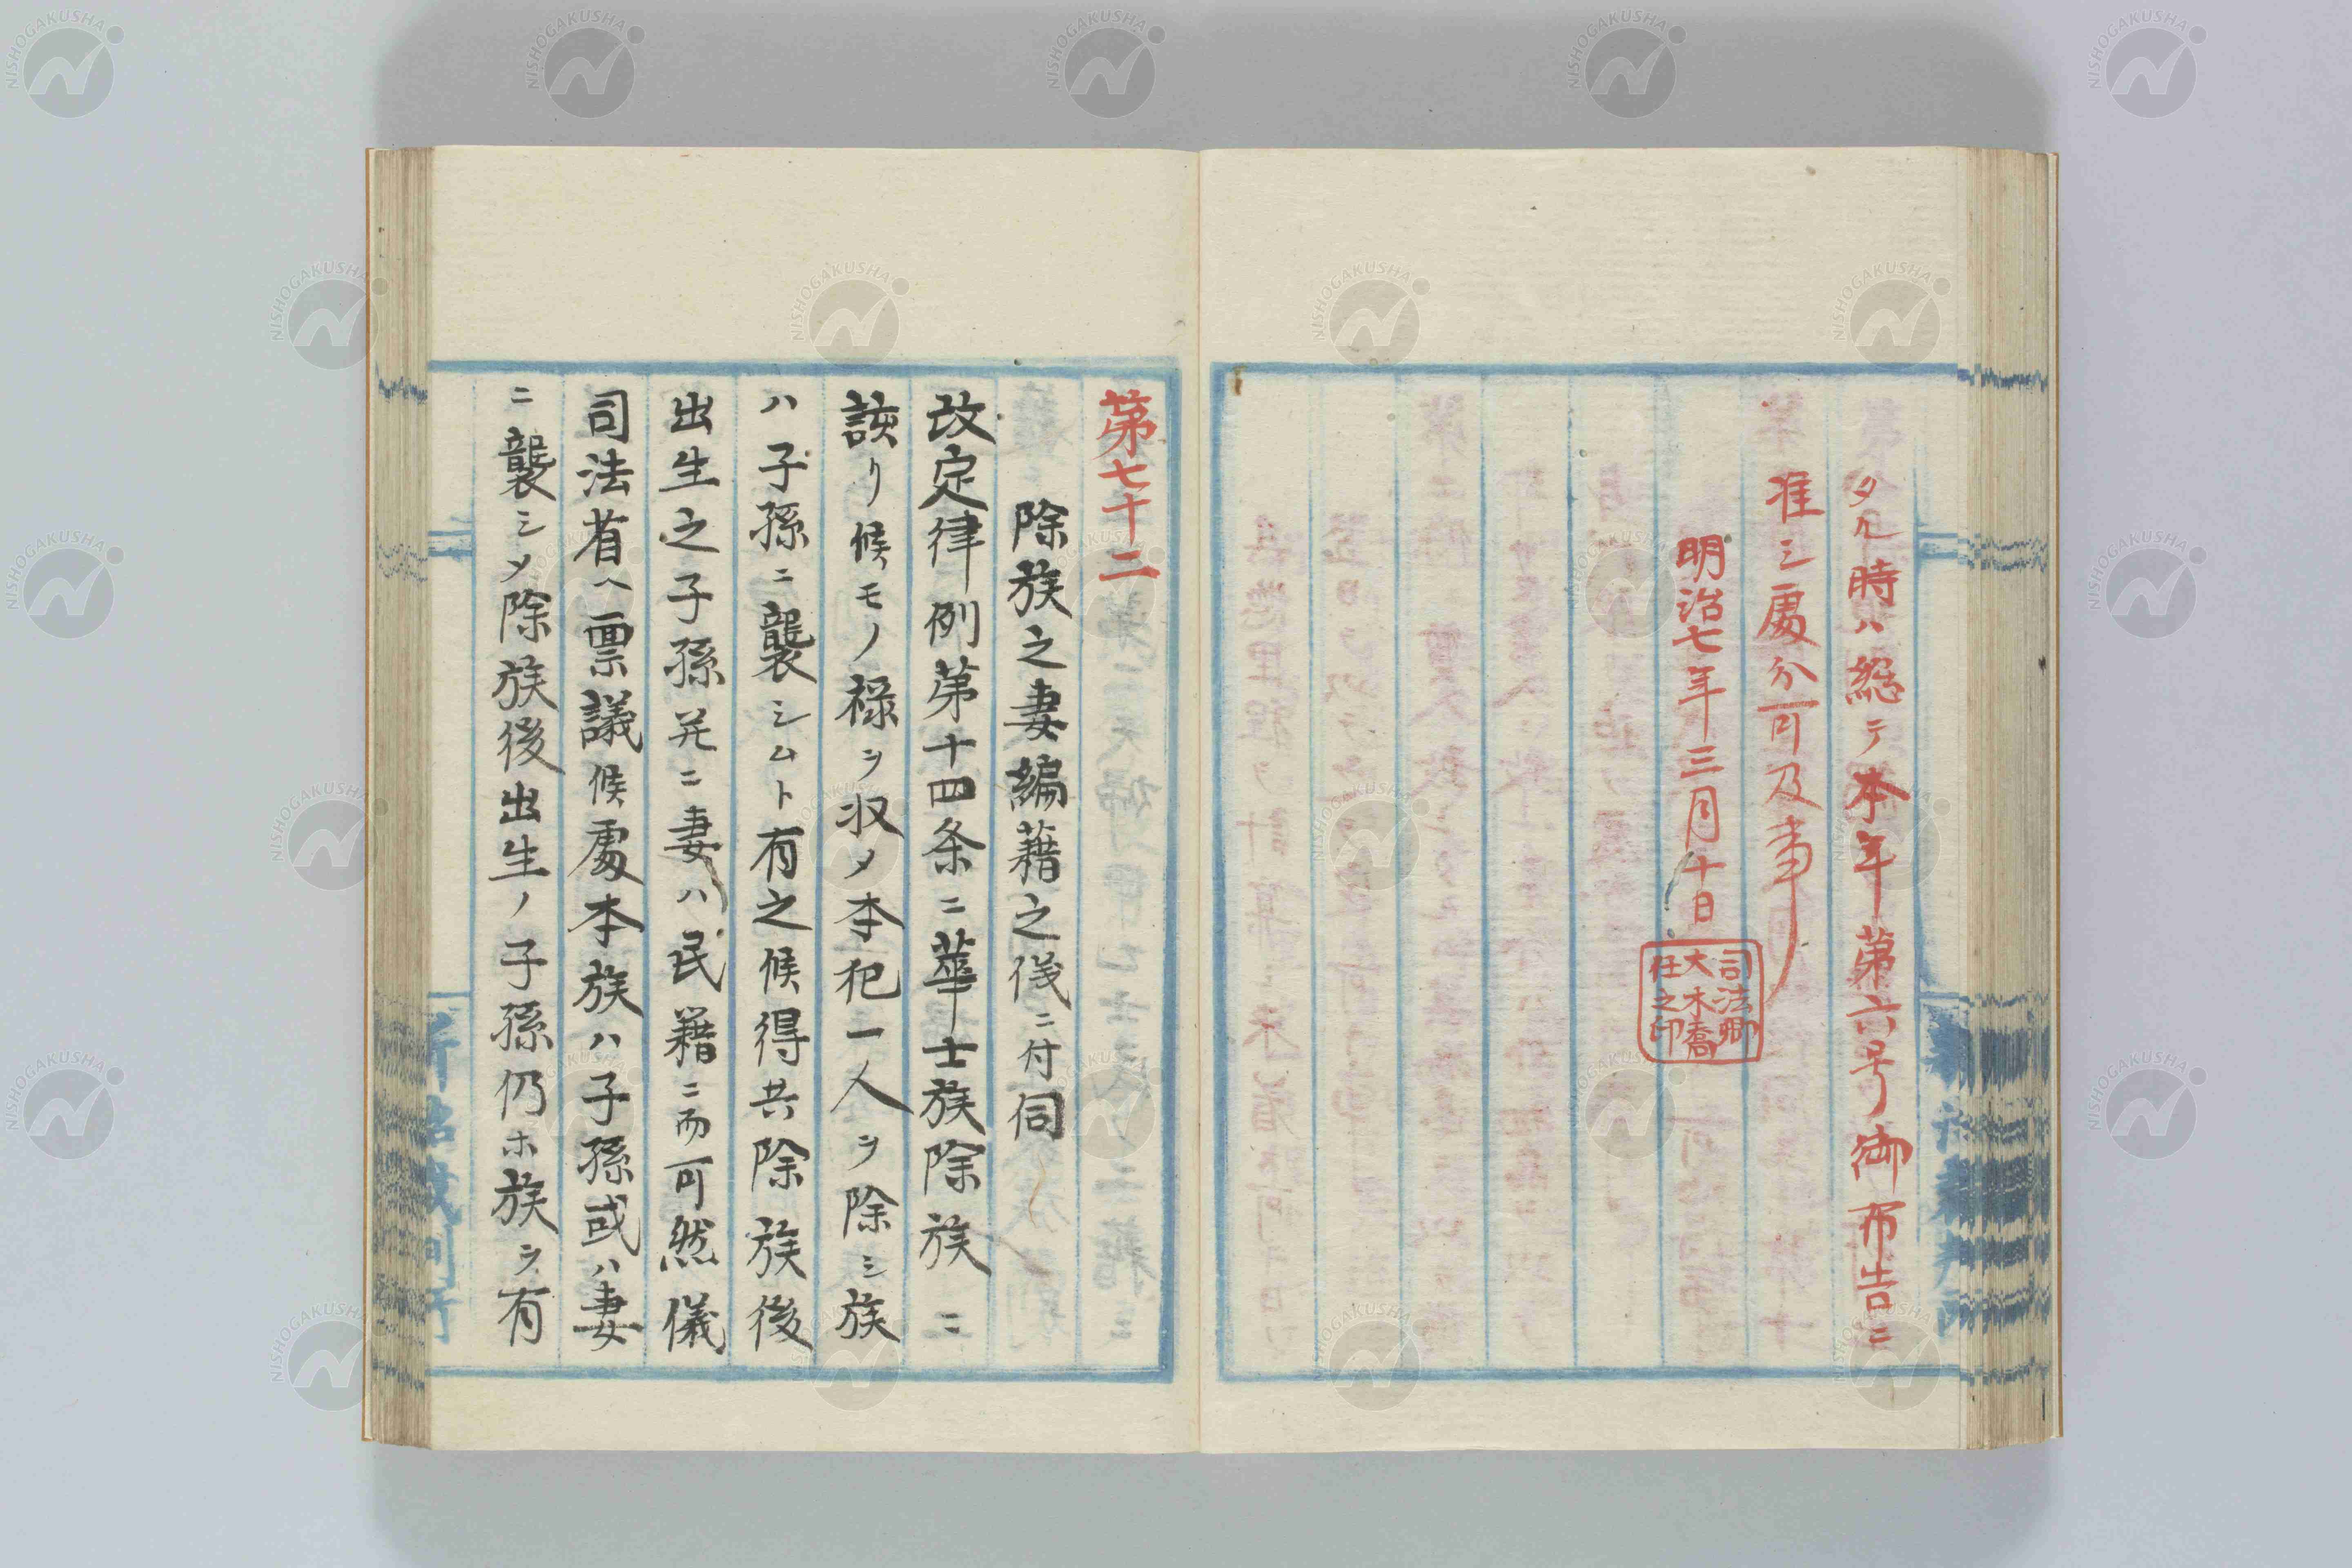 タル時ハ総テ本年第六号御布告ニ
准シ處分可及事
明治七年三月十日
司法卿
大木喬
任之印
第七十二
除族之妻編藉之儀ニ付伺
改定律例第十四条ニ華士族除族ニ
該リ候モノ禄ヲ収メ本犯一人ヲ除シ族
ハ子孫ニ襲シムト有之候得共除族後
出生之子孫并ニ妻ハ民籍ニ而可然儀
司法省ヘ票議候處本族ハ子孫或ハ妻
ニ襲シメ除族後出生ノ子孫仍ホ族ヲ有
NISHOGAKUSHA